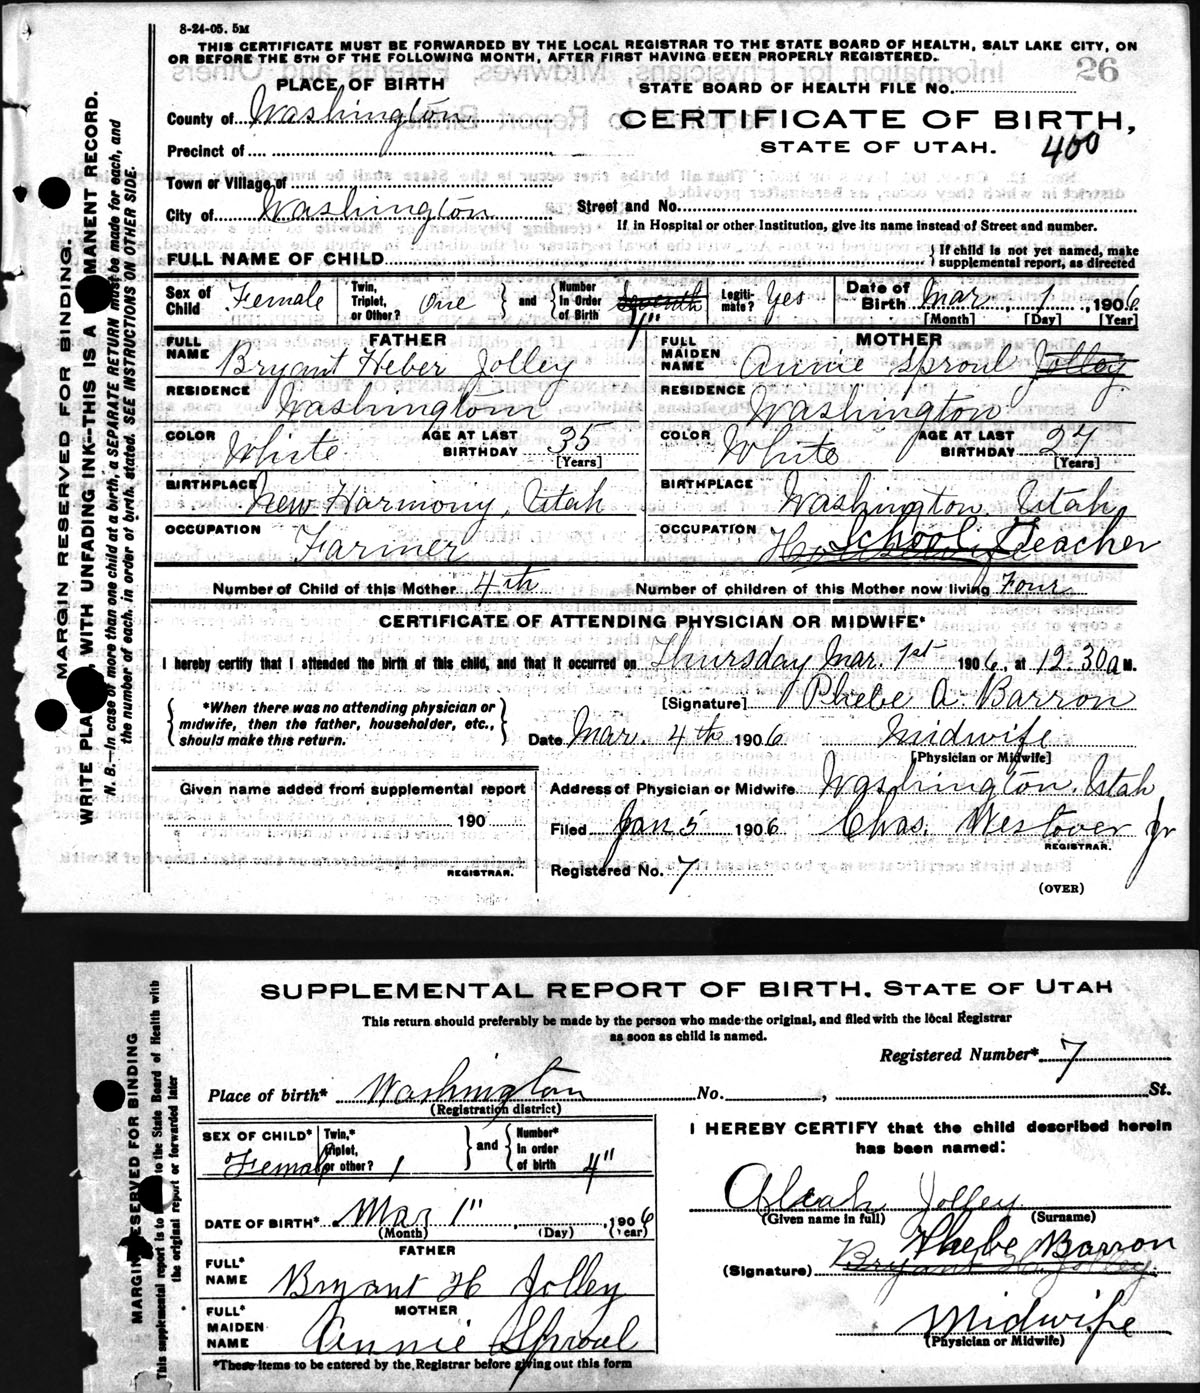 8-24-05. 5M
THIS CERTIFICATE MUST BE FORWARDED BY THE LOCAL REGISTRAR TO THE STATE BOARD OF HEALTH, SALT LAKE CITY, ON
OR BEFORE THE 5TH OF THE FOLLOWING MONTH, AFTER FIRST HAVING BEEN PROPERLY REGISTERED.
26
PLACE OF BIRTH
STATE BOARD OF HEALTH FILE No.
County of Washington
CERTIFICATE OF BIRTH,
STATE OF UTAH.
400
Precinct of
Town or Village of
City of Washington
Street and No.
If in Hospital or other Institution, give its name instead of Street and number.
FULL NAME OF CHILD
If child is not yet named, make
supplemental report, as directed
Sex of Child Female
Twin, Triplet, or Other? One
and
Number in Order of Birth Seventh 4"
Legitimate? Yes
Date of Birth Mar. 1, 1906
[Month] [Day] [Year]
FATHER
FULL NAME Bryant Heber Jolley
RESIDENCE Washington
COLOR White
AGE AT LAST BIRTHDAY 35
[Years]
BIRTHPLACE New Harmony, Utah
OCCUPATION Farmer
MOTHER
FULL MAIDEN NAME Annie Sproul Jolley
RESIDENCE Washington
COLOR White
AGE AT LAST BIRTHDAY 27
[Years]
BIRTHPLACE Washington, Utah
OCCUPATION Housewife School Teacher
Number of Child of this Mother 4th
Number of children of this Mother now living Four
CERTIFICATE OF ATTENDING PHYSICIAN OR MIDWIFE*
I hereby certify that I attended the birth of this child, and that it occurred on Thursday Mar. 1st 1906, at 12.30 a M.
*When there was no attending physician or
midwife, then the father, householder, etc.,
should make this return.
[Signature] Phebe A. Barron
Date Mar. 4th 1906
Midwife
[Physician or Midwife]
Given name added from supplemental report
190
REGISTRAR.
Address of Physician or Midwife Washington, Utah
Filed Jan 5 1906 Chas. Westover Jr
REGISTRAR.
Registered No. 7
(OVER)
MARGIN RESERVED FOR BINDING.
WRITE PLA, WITH UNFADING INK—THIS IS A MANENT RECORD.
N. B.—In case of more than one child at a birth, a SEPARATE RETURN must be made for each, and
the number of each, in order of birth, stated. SEE INSTRUCTIONS ON OTHER SIDE.
SUPPLEMENTAL REPORT OF BIRTH, STATE OF UTAH
This return should preferably be made by the person who made the original, and filed with the local Registrar
as soon as child is named.
Registered Number* 7
Place of birth* Washington No. , St.
(Registration district)
SEX OF CHILD* Female
Twin,* triplet, or other? 1
and
Number* in order of birth 4"
DATE OF BIRTH* Mar 1", 1906
(Month) (Day) (Year)
FATHER
FULL* NAME Bryant H Jolley
MOTHER
FULL* MAIDEN NAME Annie Sproul
*These items to be entered by the Registrar before giving out this form
I HEREBY CERTIFY that the child described herein
has been named:
Aleah Jolley
(Given name in full) (Surname)
Phebe Barron
(Signature) Bryant H. Jolley
Midwife
(Physician or Midwife)
MARGIN RESERVED FOR BINDING
This supplemental report is to the State Board of Health with
the original report or forwarded later